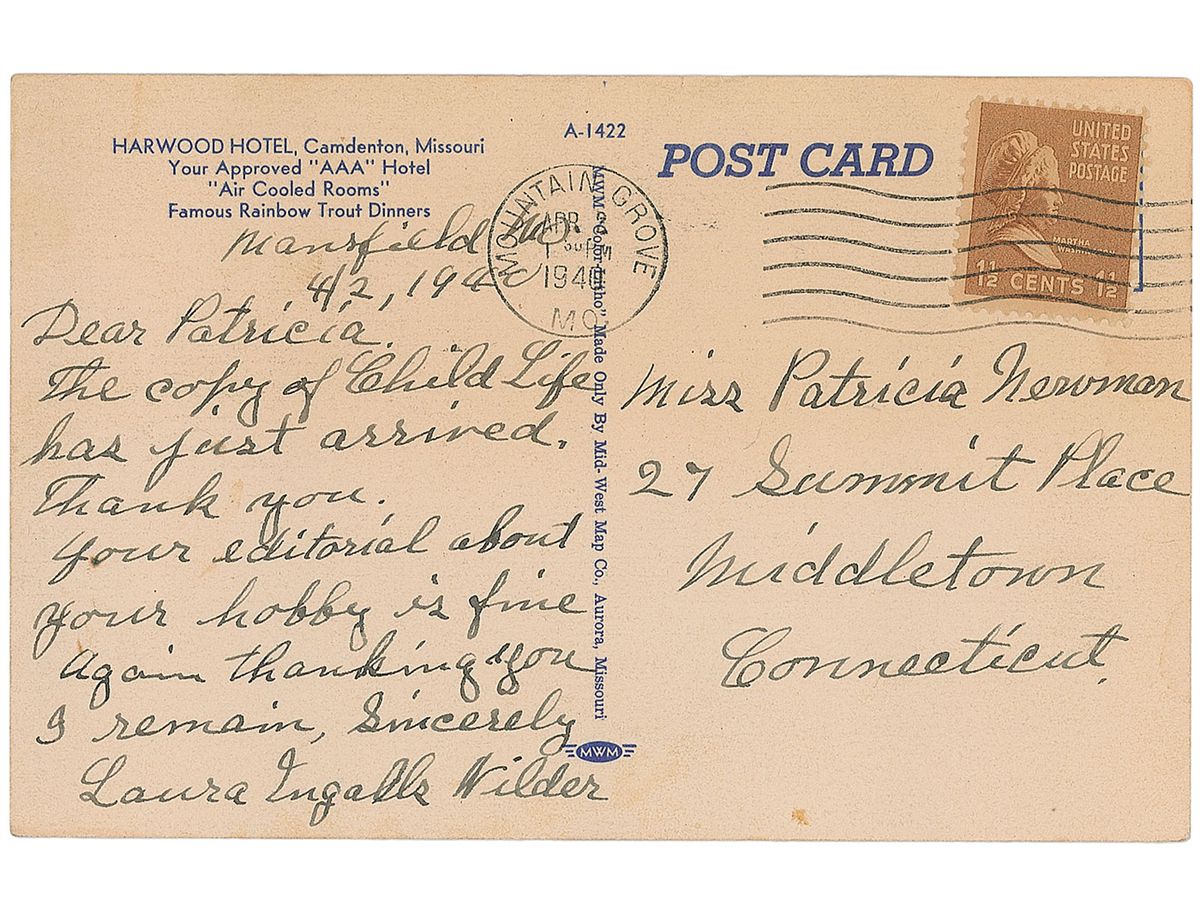 HARWOOD HOTEL, Camdenton, Missouri
Your Approved "AAA" Hotel
"Air Cooled Rooms"
Famous Rainbow Trout Dinners
Mansfield Mo
4/2, 194
Dear Patricia.
The copy of Child Life
has just arrived.
Thank you.
Your editorial about
your hobby is fine
Again thanking you
I remain, Sincerely
Laura Ingalls Wilder
A-1422
MWM "Color-Litho" Made Only By Mid-West Map Co., Aurora, Missouri
MWM
MOUNTAIN GROVE
APR
PM
194
MO.
POST CARD
UNITED
STATES
POSTAGE
MARTHA
WASHINGTON
1½ CENTS 1½
Miss Patricia Newman
27 Summit Place
Middletown
Connecticut.